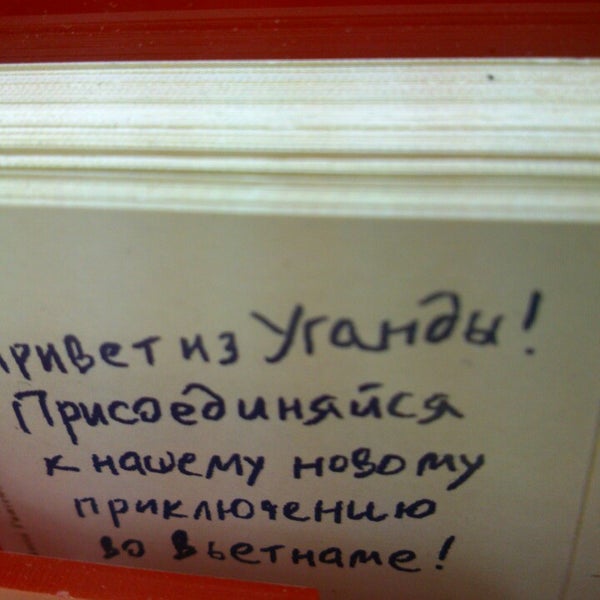 Привет из Уганды!
Присоединяйся
к нашему новому
приключению
во Вьетнаме!